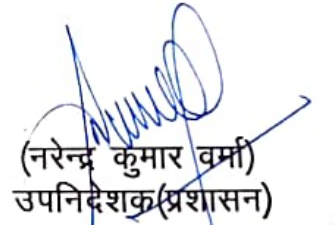 (नरेन्द्र कुमार वर्मा)
उपनिदेशक(प्रशासन)